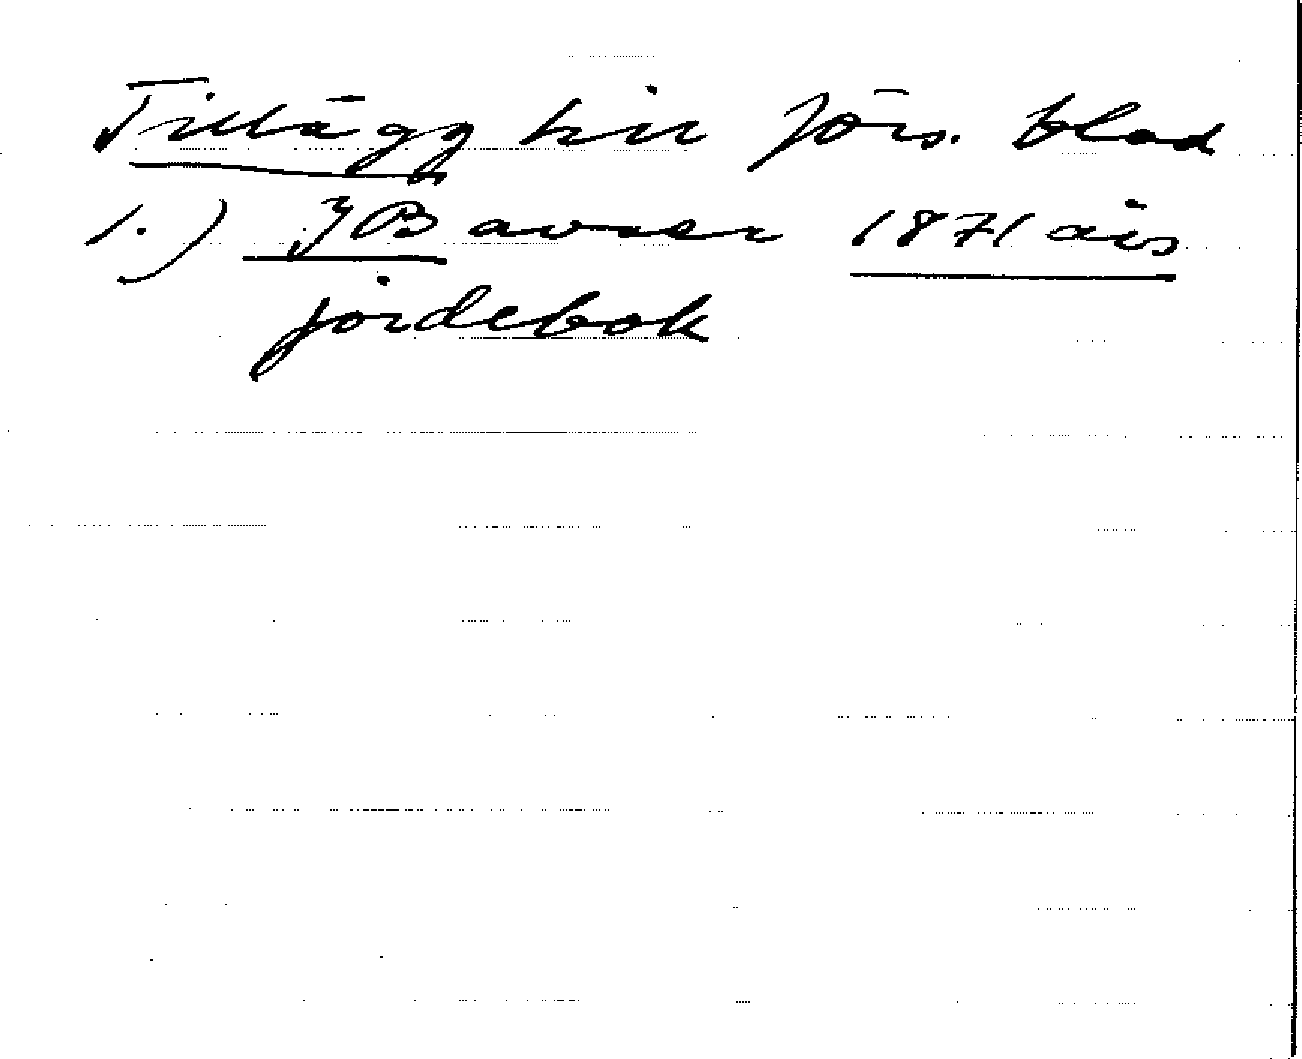 Tillägg till förs. blad
1.) JB avser 1871 års
jordebok